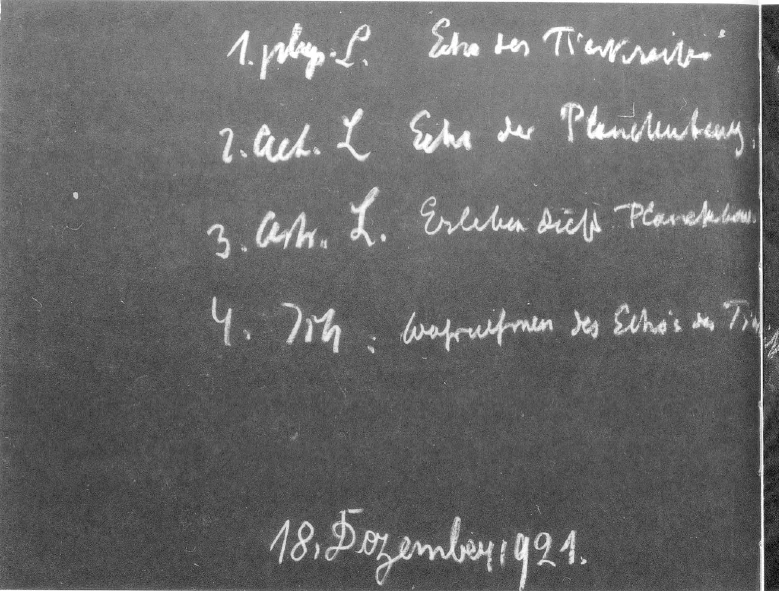 1. phys. L. Echo des Tierkreises
2. Aet. L Echo der Planetenbeweg.
3. Astr. L. Erleben dieser Planetenbew.
4. Ich : wahrnehmen des Echos des Tier
18. Dezember 1921.